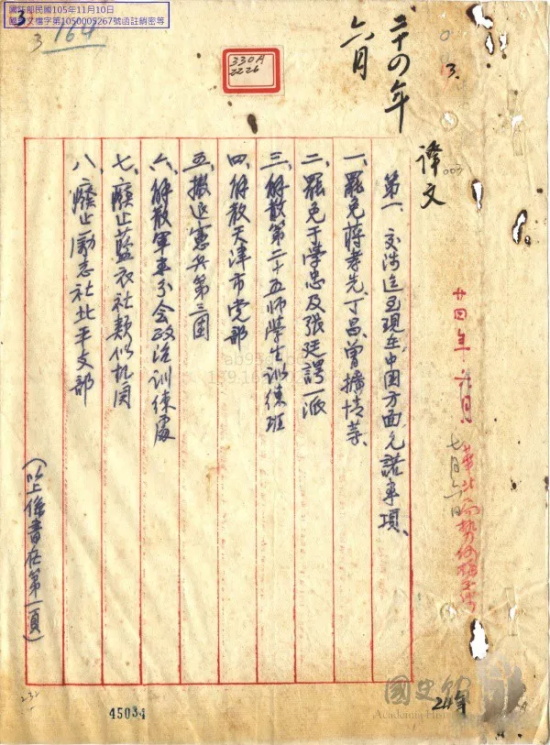 國防部民國105年11月10日
1050005267號函註銷密等
3
164
3
330A
2226
二十四年
六月
譯文
廿四年六月
第一、交涉迄至現在中国方面允諾事項、
一、罷免蔣孝先、丁昌、曾擴情等、
二、罷免于學忠及張廷諤一派
三、解散第二十五师學生訓練班
四、解散天津市党部
五、撤退憲兵第三团
六、解散軍事分会政治訓練處
七、廢止藍衣社類似机関
八、廢止励志社北平支部
(以上係書在第一頁)
45034
國史館